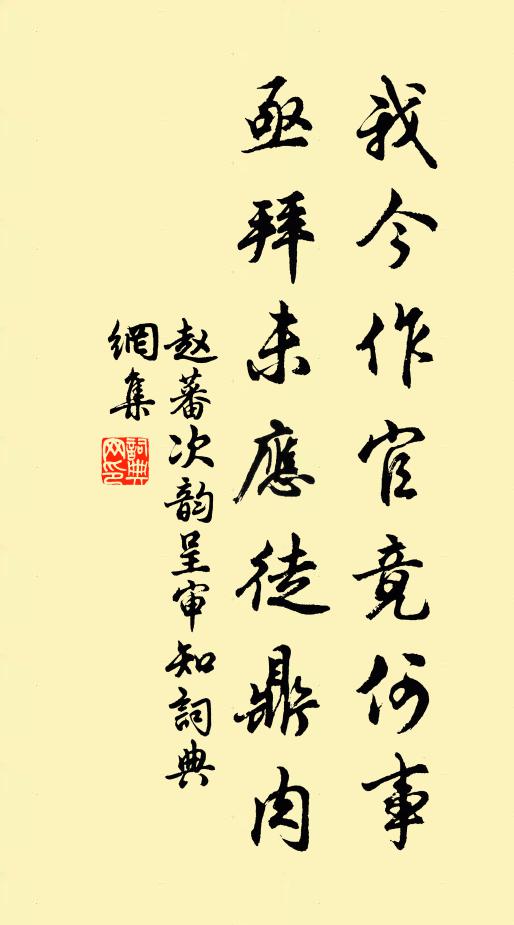 我今作官竟何事
亟拜未應徒鼎肉
赵蕃次韵呈审知詞典
網集
詞典网印